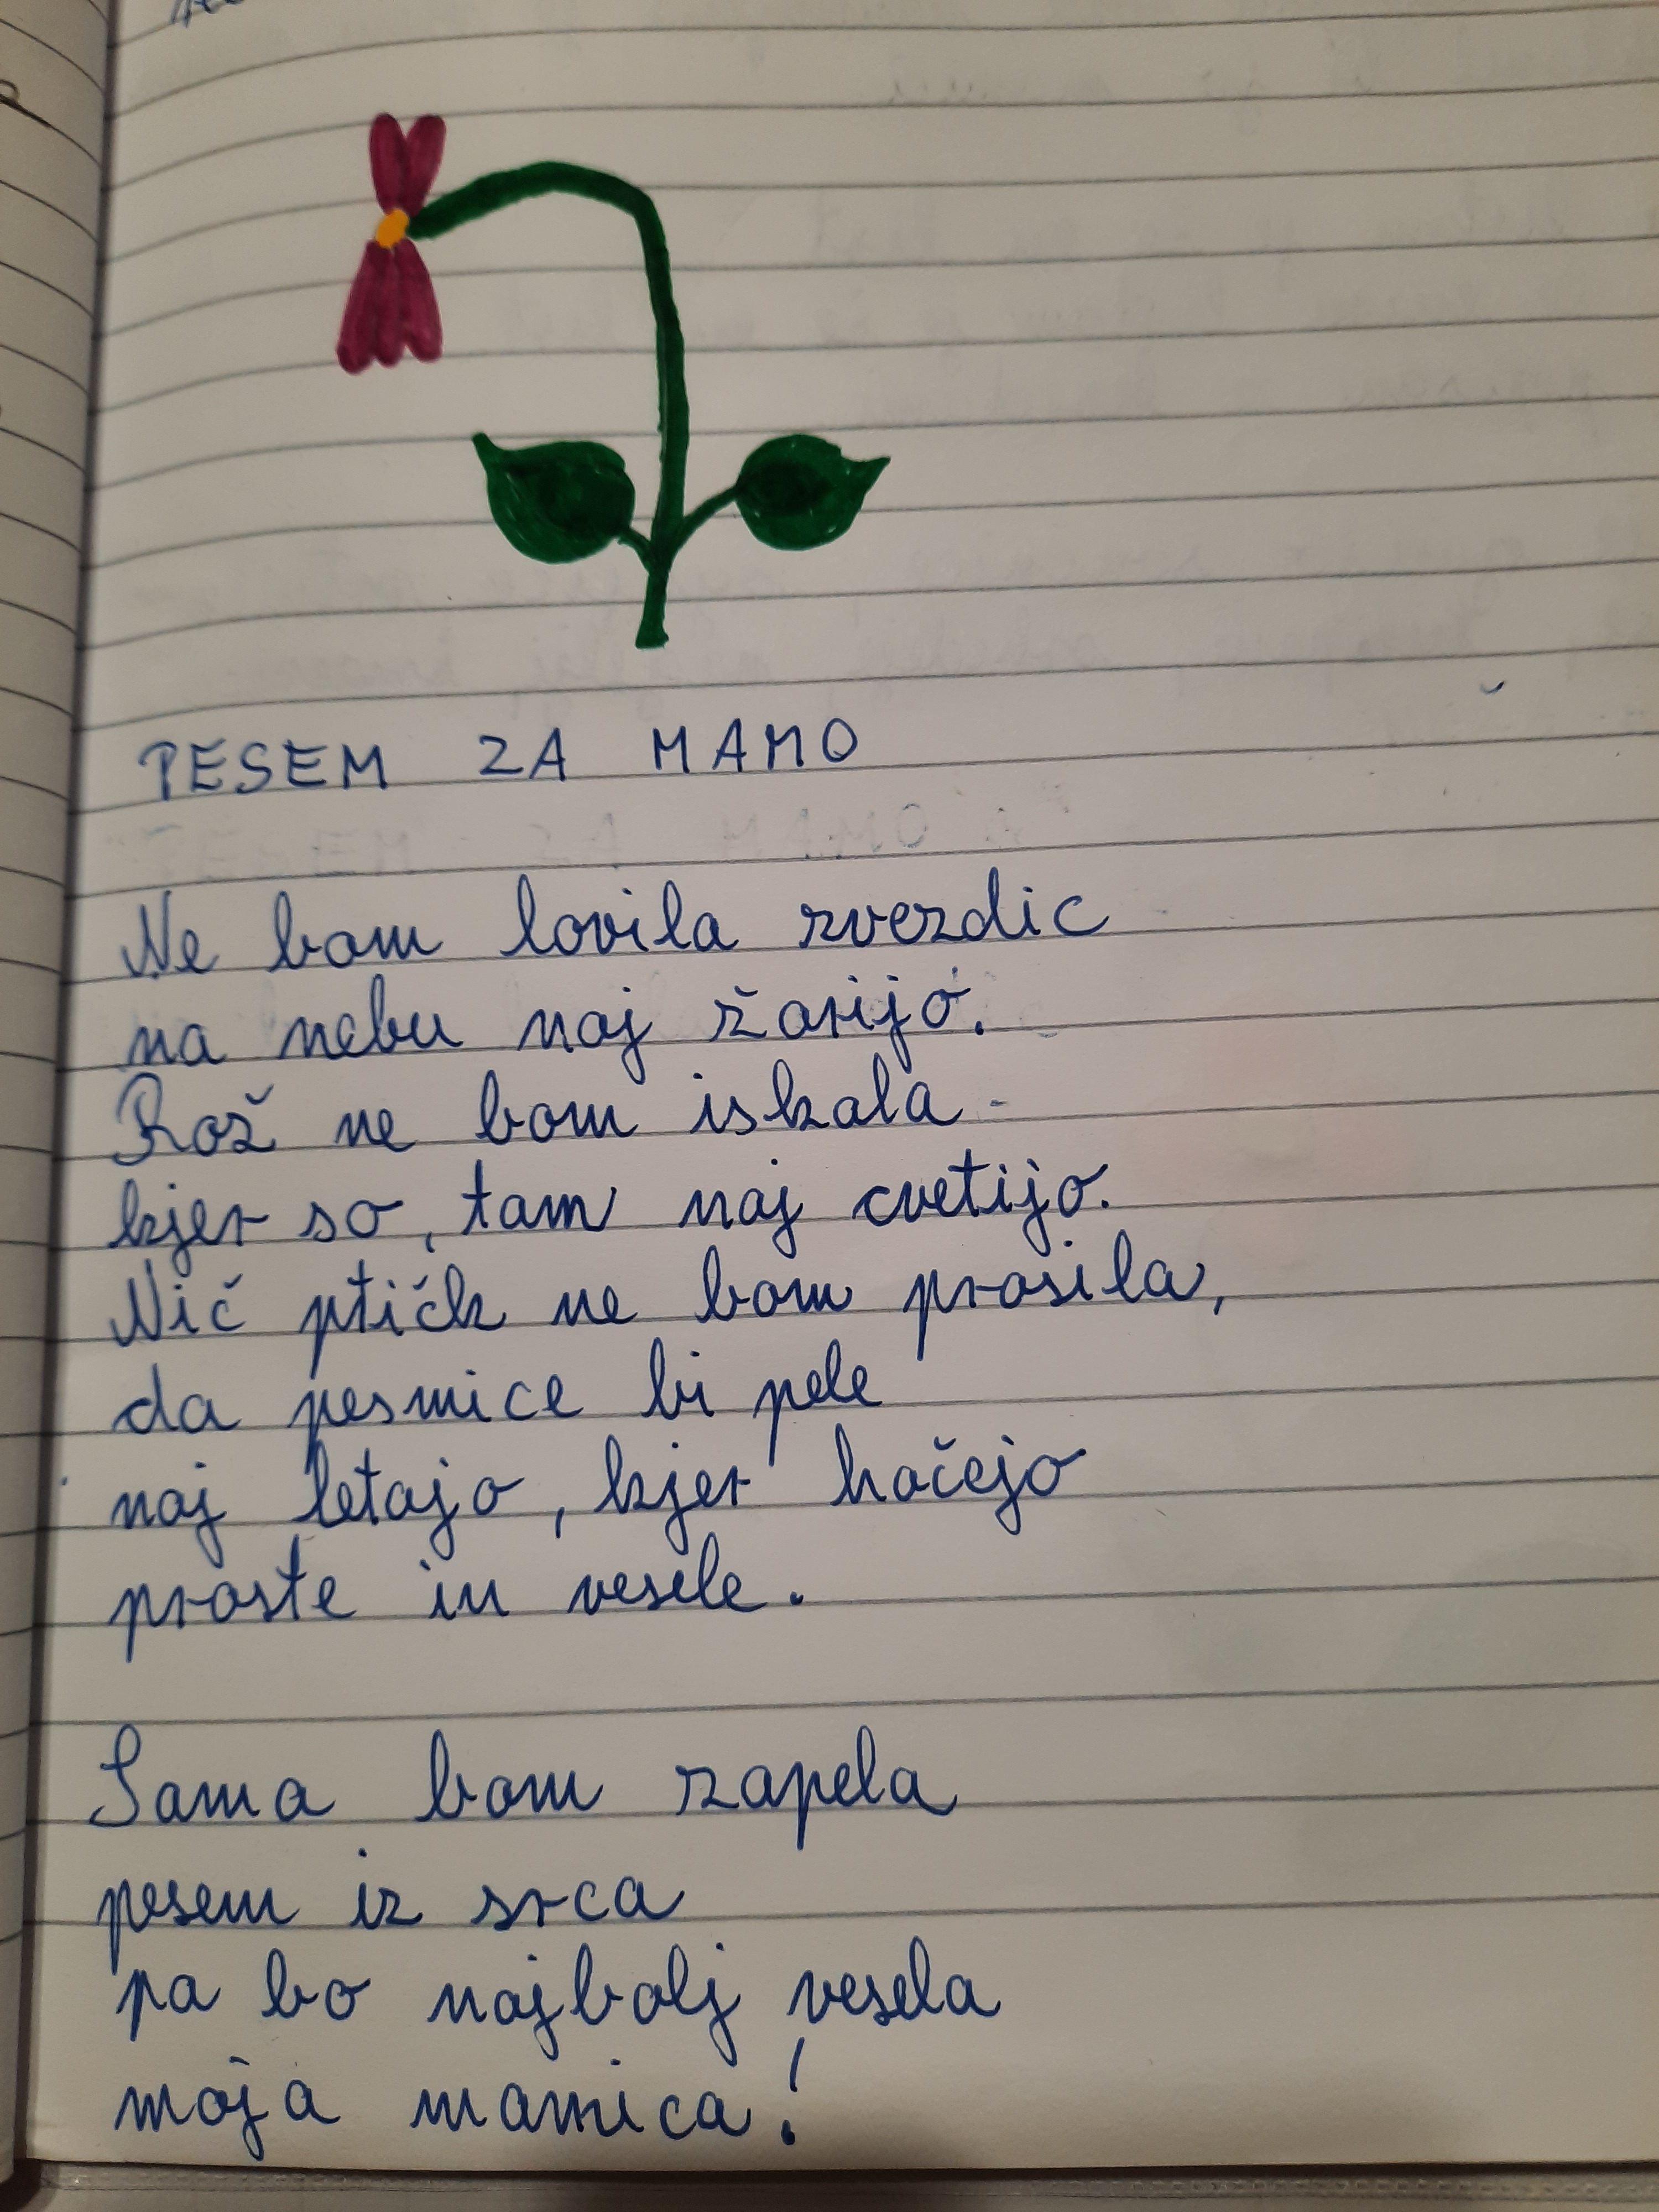 PESEM ZA MAMO
Ne bom lovila zvezdic
na nebu naj žarijo.
Rož ne bom iskala -
kjer so, tam naj cvetijo.
Nič ptičk ne bom prosila,
da pesmice bi pele
naj letajo, kjer hočejo
proste in vesele.
Sama bom zapela
pesem iz srca
pa bo najbolj vesela
moja mamica!